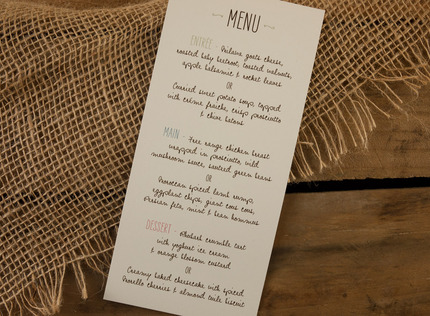 MENU
ENTRÉE - goats cheese,
roasted baby beetroot, toasted walnuts,
apple balsamic & rocket leaves
OR
Curried sweet potato soup, topped
with crème fraiche, crisp prosciutto
& chive batons
MAIN - Free range chicken breast
wrapped in prosciutto, wild
mushroom sauce, sauteed green beans
OR
Moroccan spiced lamb rump,
eggplant chips, giant cous cous,
Persian feta, mint & bean hommus
DESSERT - Rhubarb crumble tart
with yoghurt ice cream
& orange blossom custard
OR
Creamy baked cheesecake with spiced
Morello cherries & almond tuile biscuit